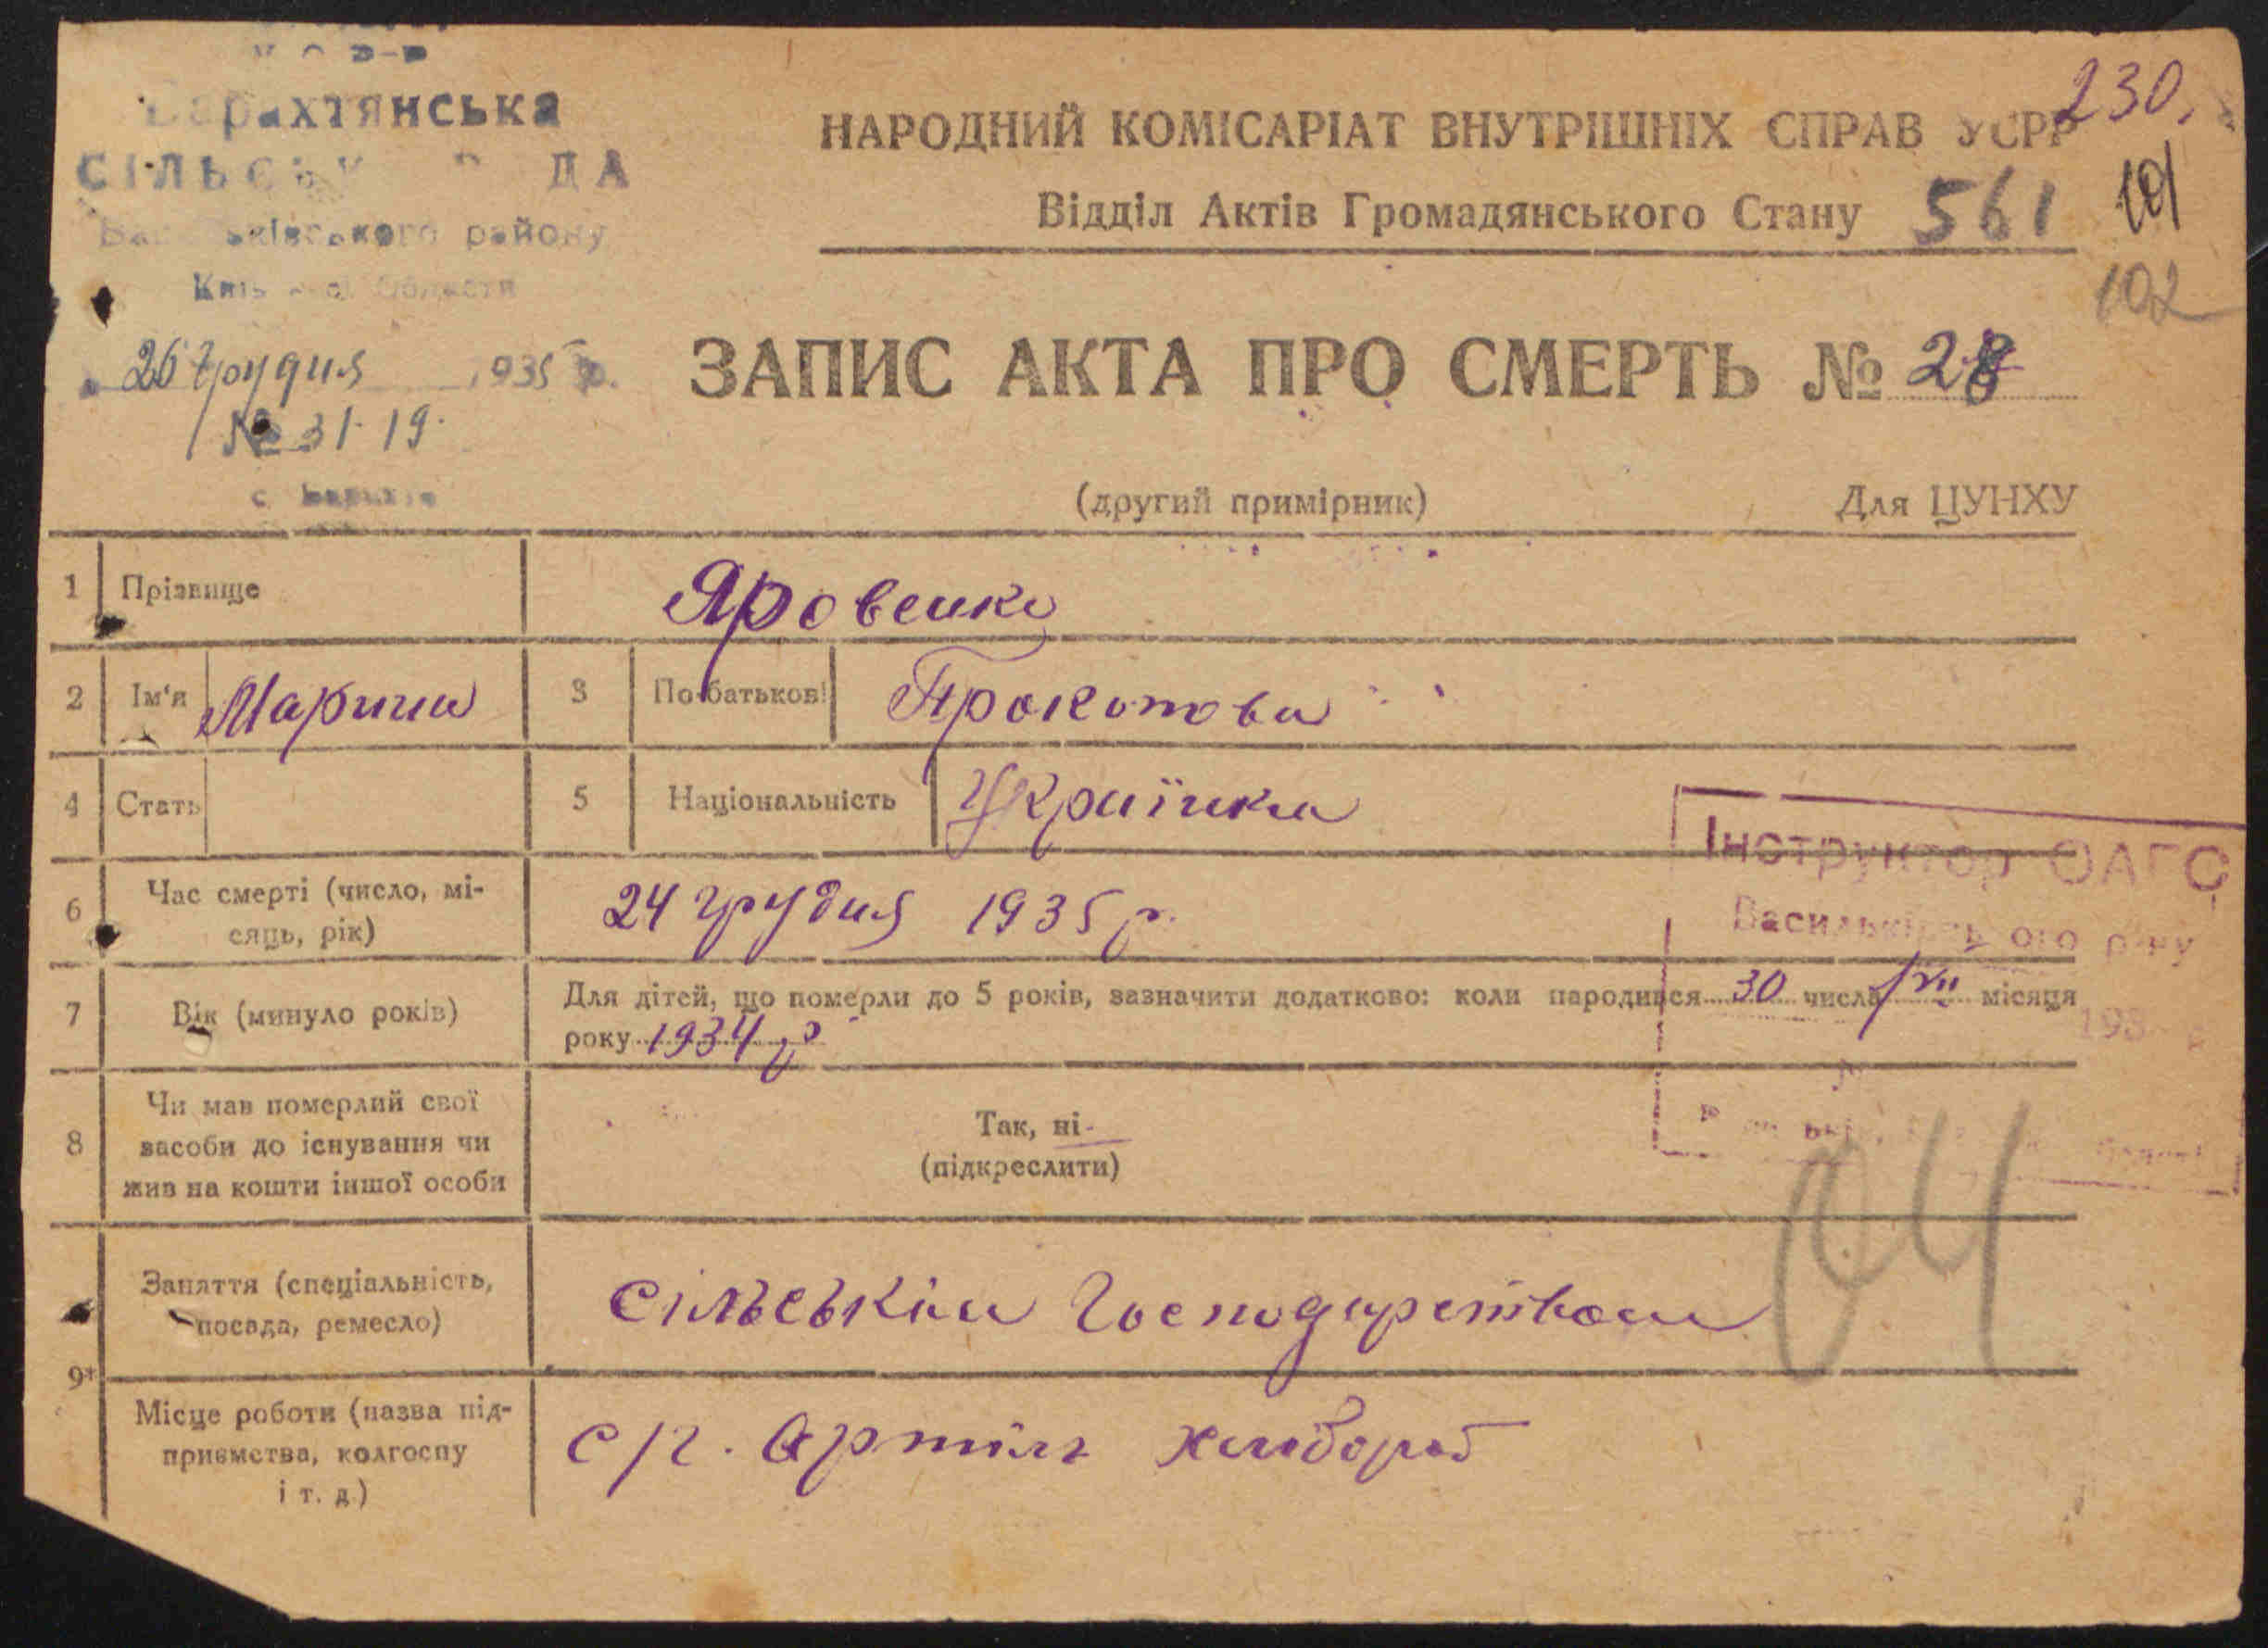 У С Р Р
Барахтянська
СІЛЬСЬКА РАДА
Васильківського району
Київської Области
26 грудня 1935 р.
№ 31-19.
с. Барахти
230.
НАРОДНИЙ КОМІСАРІАТ ВНУТРІШНІХ СПРАВ УСРР
101
Відділ Актів Громадянського Стану 561
102
ЗАПИС АКТА ПРО СМЕРТЬ № 28
(другий примірник) Для ЦУНХУ
1 Прізвище Яровенко
2 Ім'я Марина 3 По батькові Прокопова
4 Стать 5 Національність Українка
Інструктор ОАГС
Васильківського р-ну
193 р.
6 Час смерті (число, мі-
сяць, рік) 24 грудня 1935 р.
7 Вік (минуло років) Для дітей, що померли до 5 років, зазначити додатково: коли народився 30 числа VII місяця
року 1934 р
8 Чи мав померлий свої
засоби до існування чи
жив на кошти іншої особи
Так, ні
(підкреслити)
04
9* Заняття (спеціальність,
посада, ремесло) Сільськім Господарством
Місце роботи (назва під-
приємства, колгоспу
і т. д.) с/г. Артіль Хлібороб